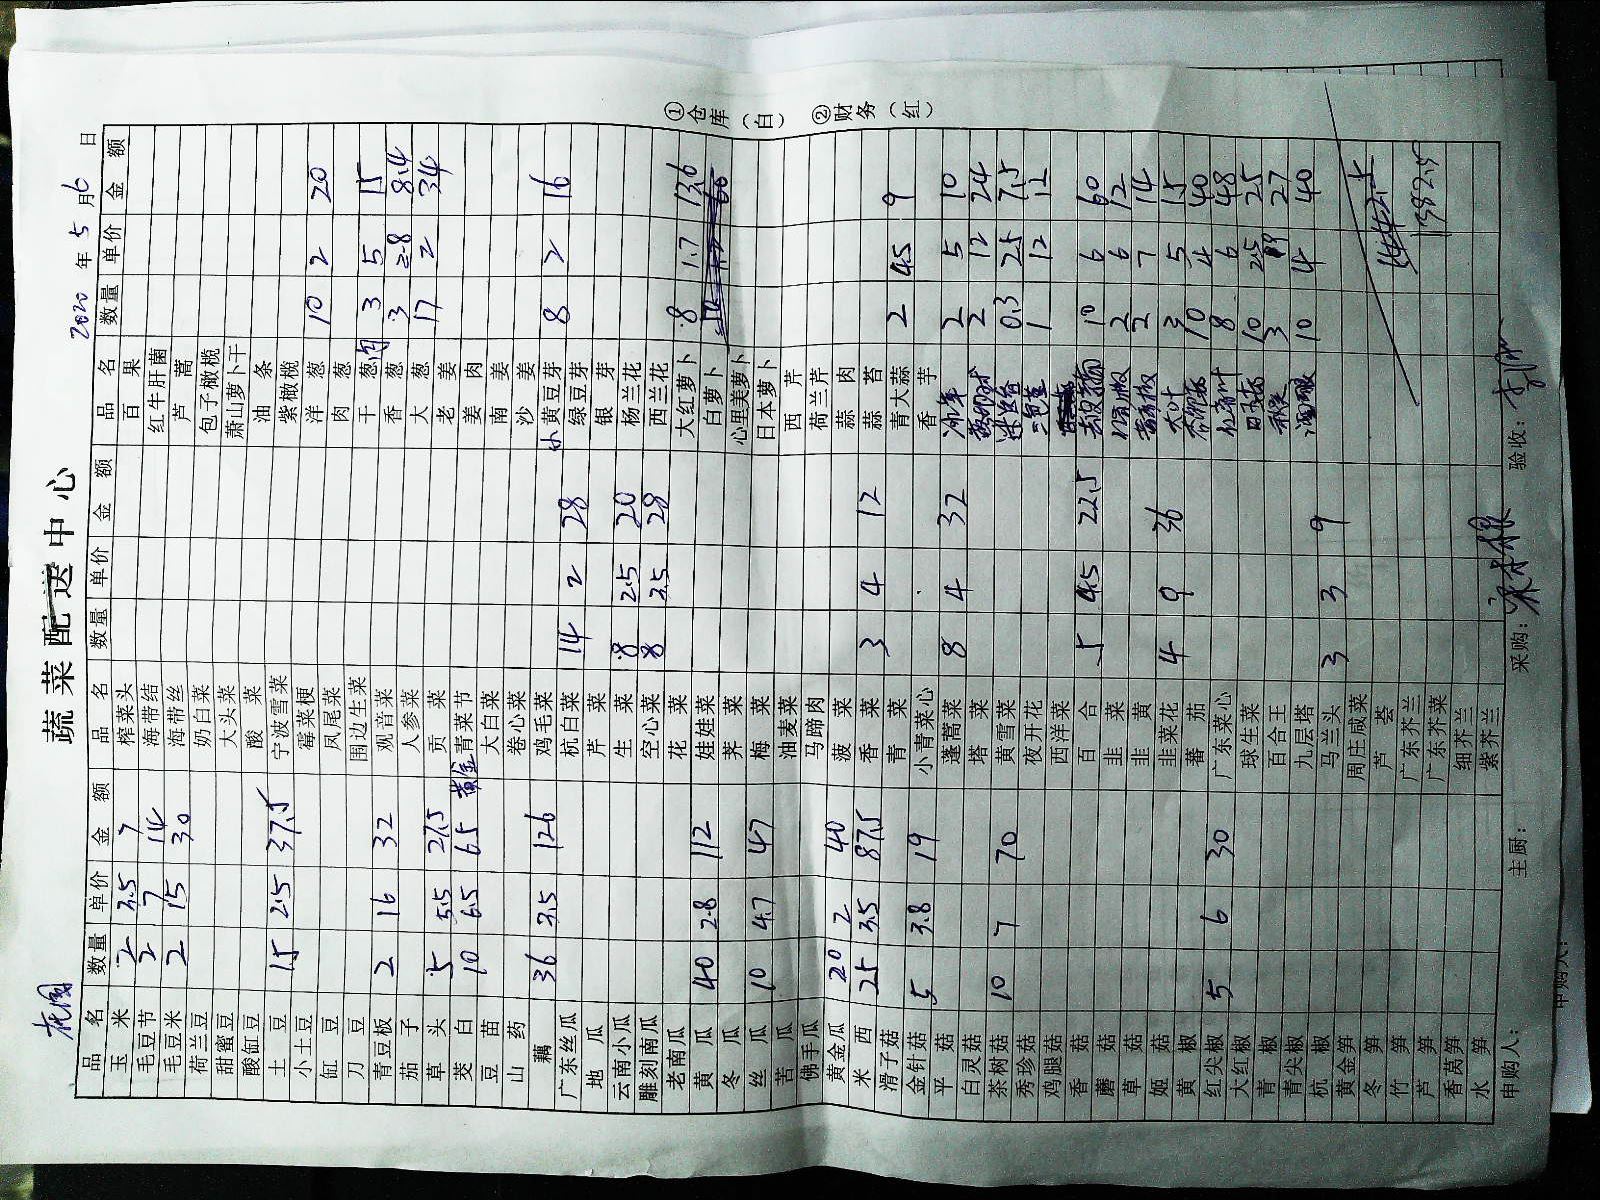 蔬菜配送中心
花园 2020 年 5 月 6 日
品名 数量 单价 金额 品名 数量 单价 金额 品名 数量 单价 金额
玉米 2 3.5 7 榨菜头 百果
毛豆节 2 7 14 海带结 红牛肝菌
毛豆米 2 15 30 海带丝 芦蒿
荷兰豆 奶白菜 包子橄榄
甜蜜豆 大头菜 萧山萝卜干
酸缸豆 酸菜 油条
土豆 15 2.5 37.5 宁波雪菜 紫橄榄
小土豆 霉菜梗 洋葱 10 2 20
缸豆 凤尾菜 肉葱
刀豆 围边生菜 干葱肉 3 5 15
青豆板 2 16 32 观音菜 香葱 3 2.8 8.4
茄子 人参菜 大葱 17 2 34
草头 5 5.5 27.5 贡菜 老姜
茭白 10 6.5 65 黄金青菜节 姜肉
豆苗 大白菜 南姜
山药 卷心菜 沙姜
藕 36 3.5 126 鸡毛菜 小黄豆芽 8 2 16
广东丝瓜 杭白菜 14 2 28 绿豆芽
地瓜 芹菜 银芽
云南小瓜 生菜 8 2.5 20 杨兰花
雕刻南瓜 空心菜 8 3.5 28 西兰花
老南瓜 花菜 大红萝卜 8 1.7 13.6
黄瓜 40 2.8 112 娃娃菜 白萝卜
冬瓜 荠菜 心里美萝卜
丝瓜 10 4.7 47 梅菜 日本萝卜
苦瓜 油麦菜 西芹
佛手瓜 马蹄肉 荷兰芹
黄金瓜 20 2 40 菠菜 蒜肉
米西 25 3.5 87.5 香菜 3 4 12 蒜苔
滑子菇 青菜 青大蒜 2 4.5 9
金针菇 5 3.8 19 小青菜心 香芋
平菇 蓬蒿菜 8 4 32 2 5 10
白灵菇 塔菜 2 12 24
茶树菇 10 7 70 黄雪菜 0.3 25 7.5
秀珍菇 夜开花 三色堇 1 12 12
鸡腿菇 西洋菜
香菇 百合 5 4.5 22.5 去皮芋艿 10 6 60
蘑菇 韭菜 2 6 12
草菇 韭黄 2 7 14
姬菇 韭菜花 4 9 36 大叶 3 5 15
黄椒 蕃茄 杏鲍菇 10 4 40
红尖椒 5 6 30 广东菜心 8 6 48
大红椒 球生菜 白玉菇 10 2.5 25
青椒 百合王 秋葵 3 9 27
青尖椒 九层塔 10 4 40
杭椒 马兰头 3 3 9
黄金笋 周庄咸菜
冬笋 芦荟
竹笋 广东芥兰 1382.5
芦笋 广东芥菜
香莴笋 细芥兰
水笋 紫芥兰
申购人： 主厨： 采购： 验收：
①仓库（白） ②财务（红）
申购人：